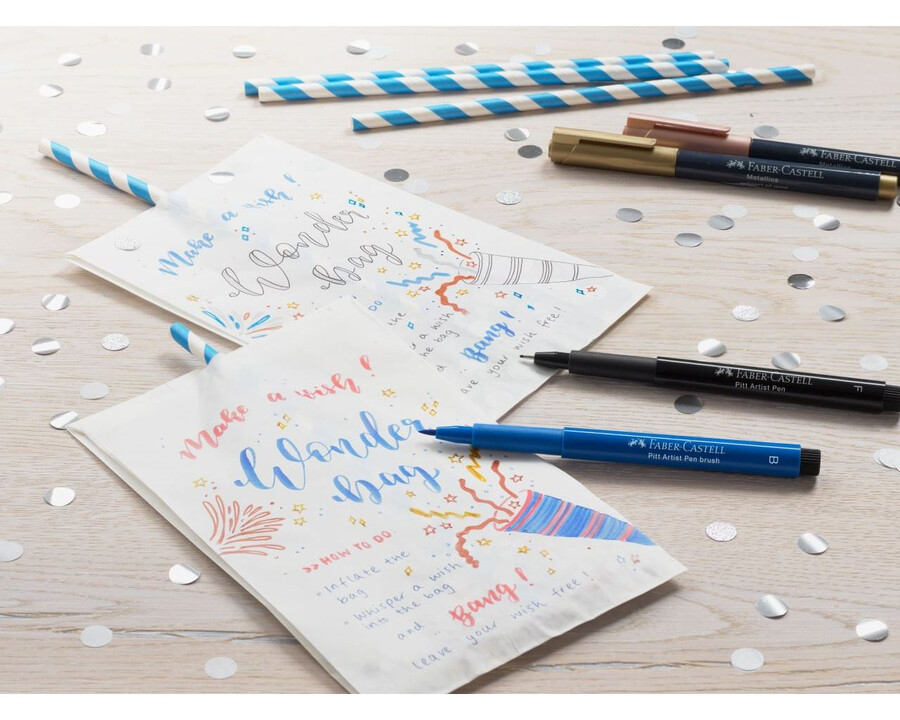 Make a wish!
Wonder
bag
DO
the
a wish
he bag
Bang!
ave your wish free!
Make a wish!
Wonder
bag
>> HOW TO DO
- Inflate the
bag
- Whisper a wish
into the bag
and
Bang!
leave your wish free!
FABER-CASTELL
FABER-CASTELL
Metallics
FABER-CASTELL
Pitt Artist Pen
F
FABER-CASTELL
Pitt Artist Pen brush
B